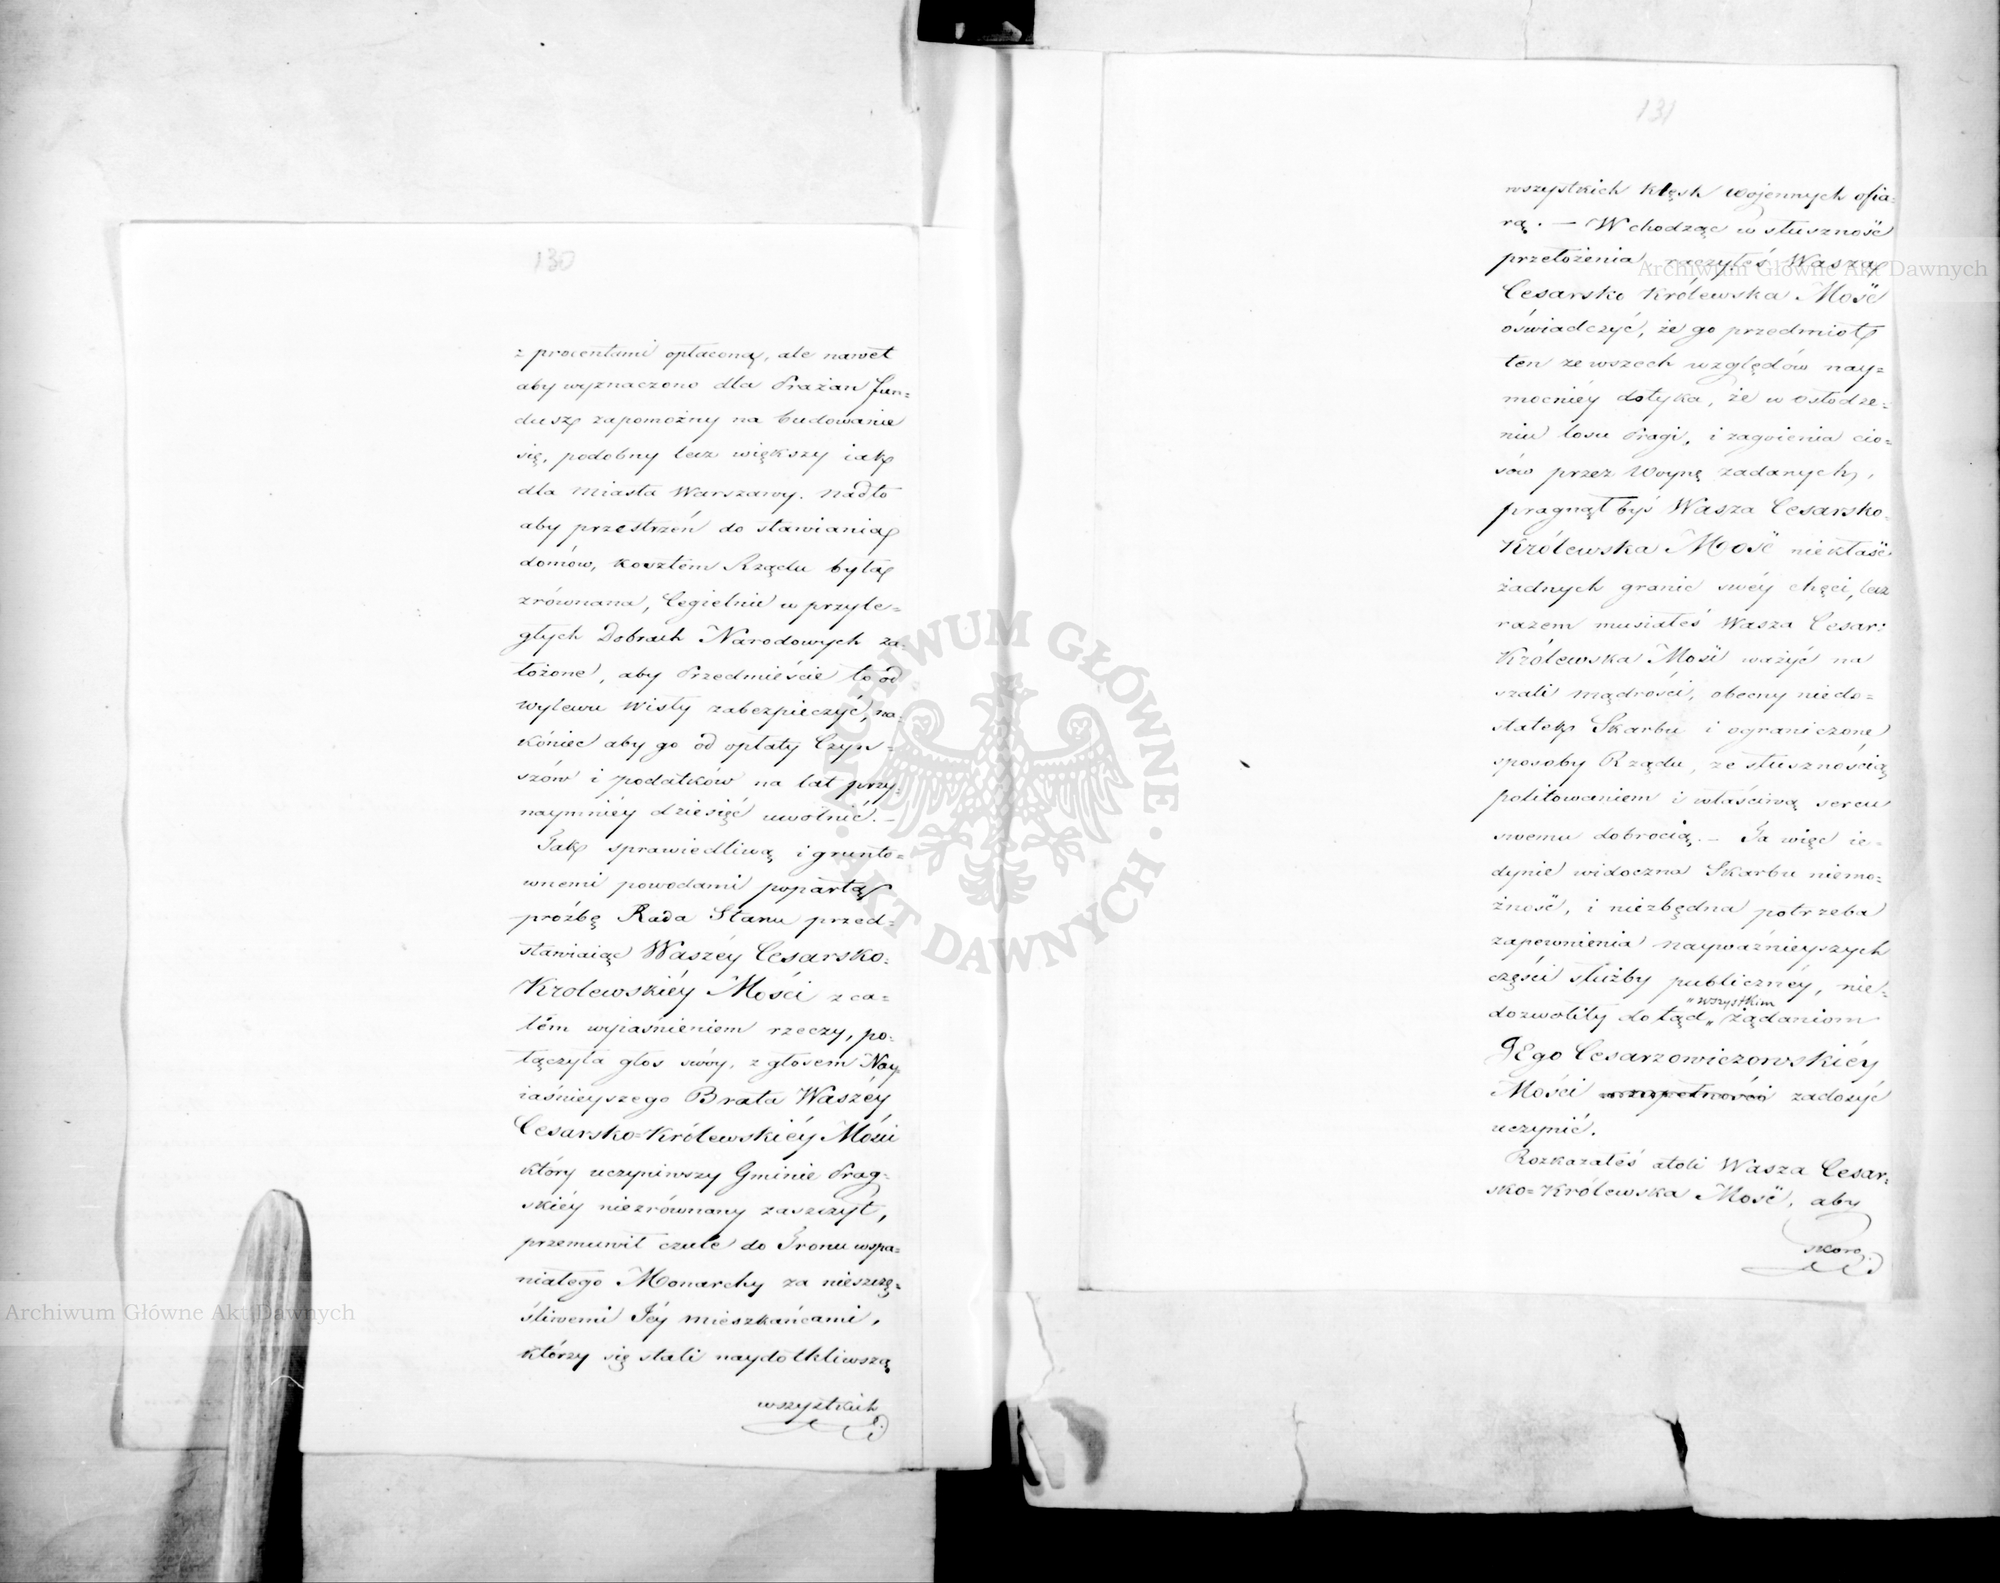 130
z procentami opłaconą, ale nawet
aby wyznaczono dla Prażan Fun=
dusz zapomożny na budowanie
się, podobny lecz większy iak
dla Miasta Warszawy. Nadto
aby przestrzeń do stawiania
domów, kosztem Rządu była
zrównana, Cegielnie w przyle=
głych Dobrach Narodowych za=
łożone, aby Przedmieście to od
wylewu Wisły zabezpieczyć, na=
koniec aby go od opłaty Czyn=
szów i podatków na lat przy=
naymniéy dziesięć uwolnić. —
Tak sprawiedliwą i grunto=
wnemi powodami popartą
prożbę Rada Stanu przed=
stawiaiąc Waszéy Cesarsko=
Krolewskiéy Mości z ca=
łém wyiaśnieniem rzeczy, po=
łączyła głos swóy, z głosem Nay=
iaśnieyszego Brata Waszéy
Cesarsko=Królewskiéy Mości
który uczyniwszy Gminie Prag=
skiéy niezrównany zaszczyt,
przemuwił czule do Tronu wspa=
niałego Monarchy za nieszczę=
śliwemi Jéy mieszkańcami,
którzy się stali naydotkliwszą
wszystkich
131
wszystkich klęsk wojennych ofia=
rą. — Wchodząc w słuszność
przełożenia, raczyłeś Wasza
Cesarsko Królewska Mość
oświadczyć, że go przedmiot
ten ze wszech względów nay=
mocniéy dotyka, że w osłodze=
niu losu Pragi, i zagoienia cio=
sów przez Woynę zadanych,
pragnął byś Wasza Cesarsko=
Królewska Mość niekłaść
żadnych granic swéy chęci, lecz
razem musiałeś Wasza Cesar:
Królewska Mość ważyć na
szali mądrości, obecny niedo=
statek Skarbu i ograniczone
sposoby Rządu, ze słusznością
politowaniem i właściwą sercu
swemu dobrocią. — Ta więc ie=
dynie widoczna Skarbu niemo=
żność, i niezbędna potrzeba
zapewnienia nayważnieyszych
części służby publicznéy, nie=
„wszystkim
dozwoliły dotąd „ żądaniom
JEgo Cesarzowiczowskiéy
Mości w zupełności zadosyć
uczynić.
Rozkazałeś atoli Wasza Cesar=
sko=Królewska Mość, aby
skoro
Archiwum Główne Akt Dawnych
Archiwum Główne Akt Dawnych
ARCHIWUM GŁÓWNE · AKT DAWNYCH ·